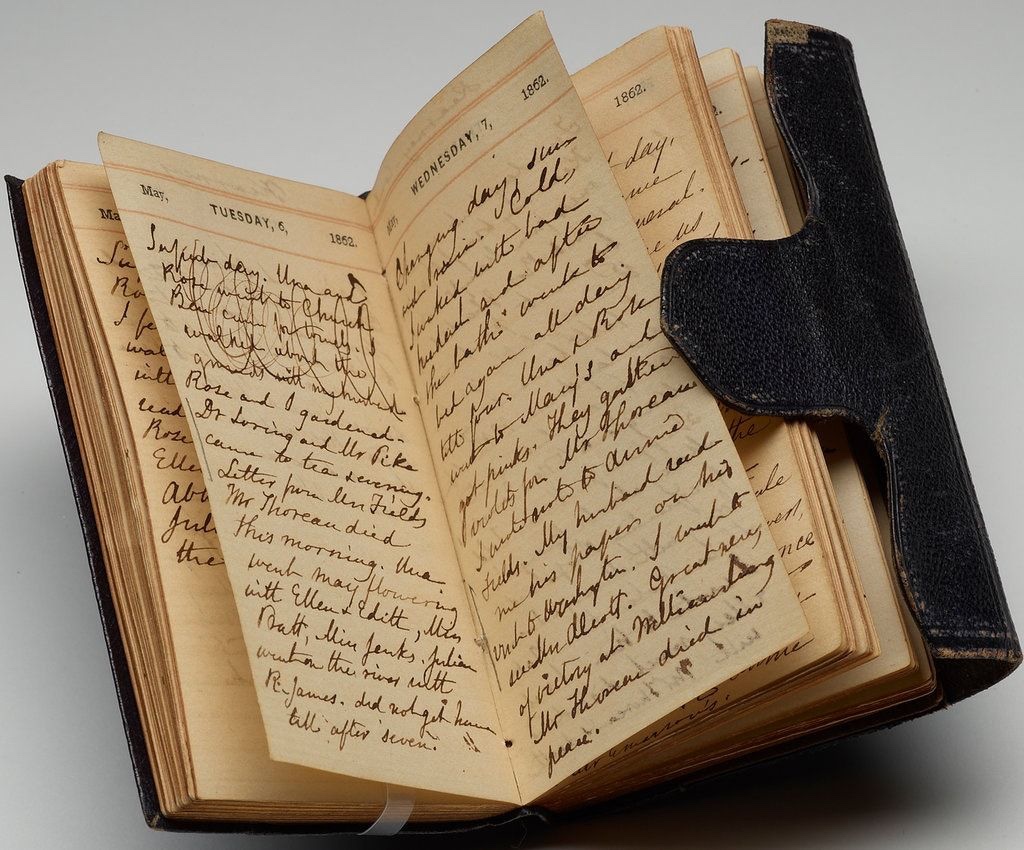 May,
TUESDAY, 6,
1862.
day. Una and
Rose went to Church
walked about the
grounds with my husband
Rose and I gardened.
Dr Loring and Mr Pike
came to tea & evening.
Letter from Mrs Fields
Mr Thoreau died
this morning. Una
went may flowering
with Ellen & Edith, Miss
Batt, Miss Jenks. Julian
went on the river with
R. James. did not get home
till after seven.
May,
WEDNESDAY, 7,
1862.
Changing day, sun
and rain. Cold,
I waked with bad
headache and after
the bath went to
bed again all day
till four. Una & Rose
went to Mary's and
got pinks. They gather
violets for Mr Thoreau
I wrote to Annie
Fields. My husband read
me his papers on his
visit to Washington. I went to
see Mr Alcott. Great news
of victory at Williamsburg
Mr Thoreau died in
peace.
Ma
Su
Ro
I fe
wal
with
read
Rose
Elle
Abb
Jul
the
1862.
day,
me
us
the